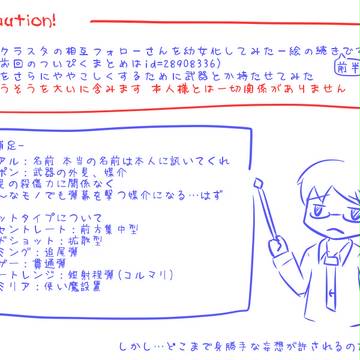 aution!
クラスタの相互フォローさんを幼女化してみた一絵の続きです
前回のついぴくまとめはid=28908336)
前半
をさらにややこしくするために武器とか持たせてみた
うそうを大いに含みます 本人様とは一切関係がありません
補足-
アル:名前 本当の名前は本人に訊いてくれ
ポン:武器の外見、媒介
の殺傷力に関係なく
~なモノでも弾幕を撃つ媒介になる…はず
ットタイプについて
セントレート:前方集中型
ドショット:拡散型
ミング:追尾弾
ザー:貫通弾
ートレンジ:短射程弾(コルマリ)
ミリア:使い魔設置
しかし…どこまで身勝手な妄想が許されるので